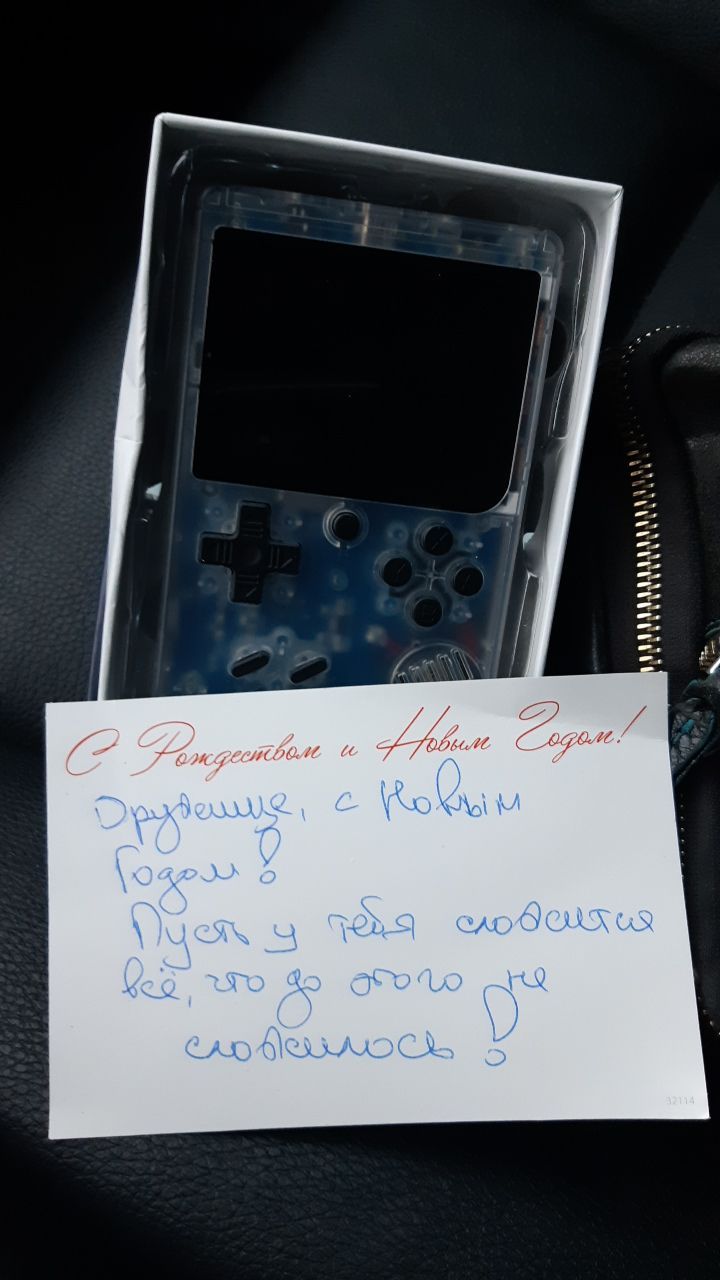 С Рождеством и Новым Годом!
Дружище, с Новым
Годом!
Пусть у тебя сложится
всё, что до этого не
сложилось!
32114